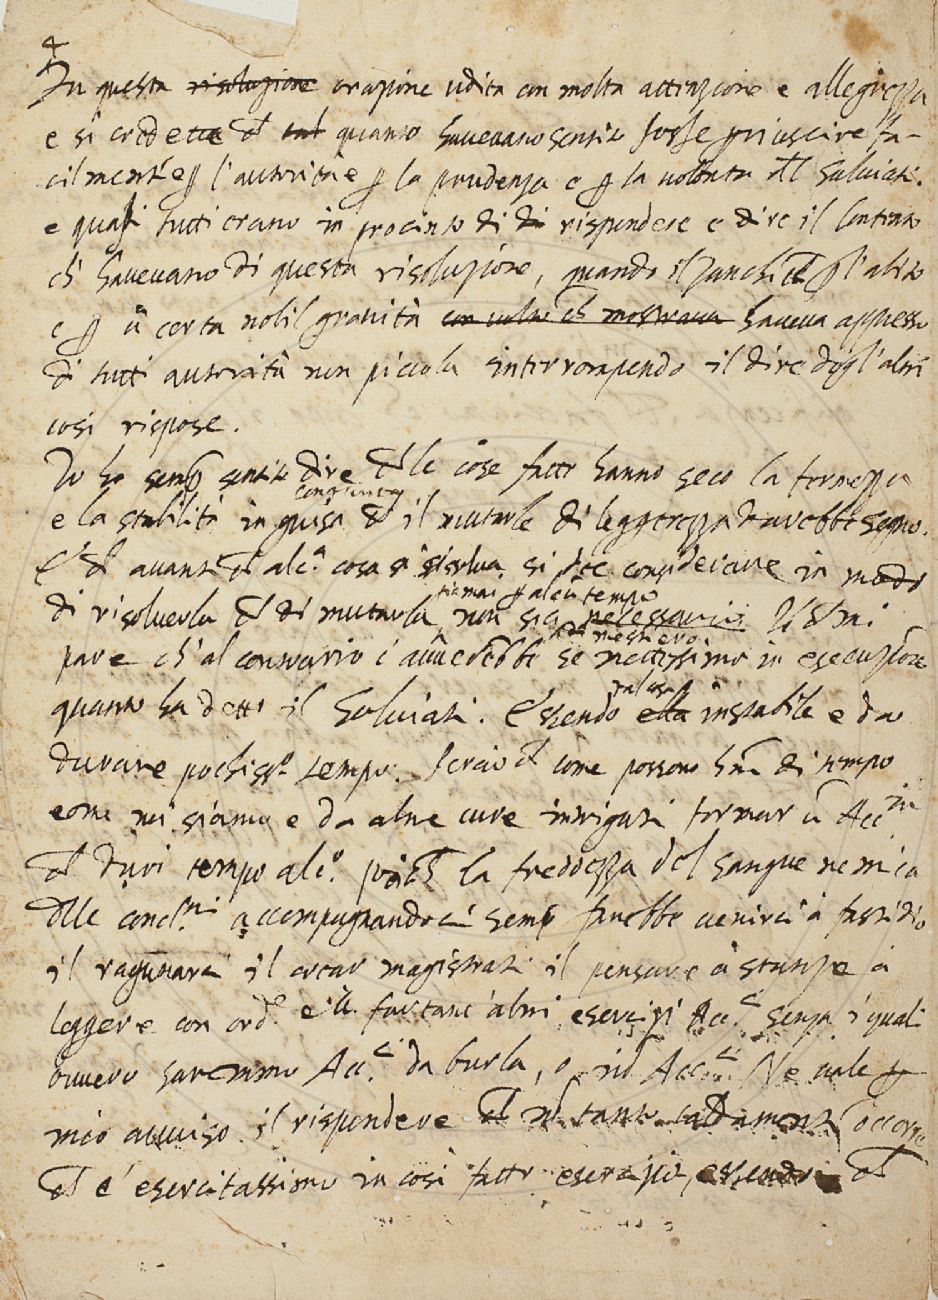 4
Fu questa risoluzione orazione udita con molta attenzione e allegrezza
e si credette ch̃ quanto havevano sentito fosse p̱ riuscire fa-
cilmente p̱ l'autorità e p̱ la prudenza e p̱ la volontà del Salviati.
e quasi tutti erano in procinto di di rispondere e dire il contento
ch' havevano di questa risoluzione, quando il Zanchini p̱ l'abito
e p̱ ũ certa nobil gravità con volto ch̃ mostrava haveva appresso
di tutti autorità non piccola interrompendo il dire degl'altri
così rispose.
Io ho semp̱ sentito dire ch̃ le cose fatte hanno seco la fermezza
e la stabilità in guisa ch̃ il mutarle di leggerezza darebbe segno.
E ch̃ avanti ch̃ alc.ª cosa si risolva si dee considerare in modo
tic mai p̱ alcũ tempo
di risolverla ch̃ di mutarla non sia necessario
mestiero
pare ch' al contrario ci avverrebbe se mettessimo in esecuzione
quanto ha detto il Salviati. Essendo ella instabile e da
durare pochiss.º tempo. come possono hñi di tempo
come noi siamo e da altre cure intrigati formar ũ Acc.
ch̃ duri tempo alc.º poi ch̃ la freddezza del sangue nemica
delle conc.ni accompagnandoci semp̱ farebbe venirci à fastidio
il ragunarci il crear magistrati il pensare à stanze à
leggere con ord.e e 'l far tanti altri esercizi Acc.ci senza i quali
ovvero saremmo Acc.ci da burla, o nõ Acc.ci Ne vale p̱
mio avviso il rispondere ch̃ nõ tanto caldamente occorre
ch̃ ci esercitassimo in così fatti esercizi, essendo ch̃